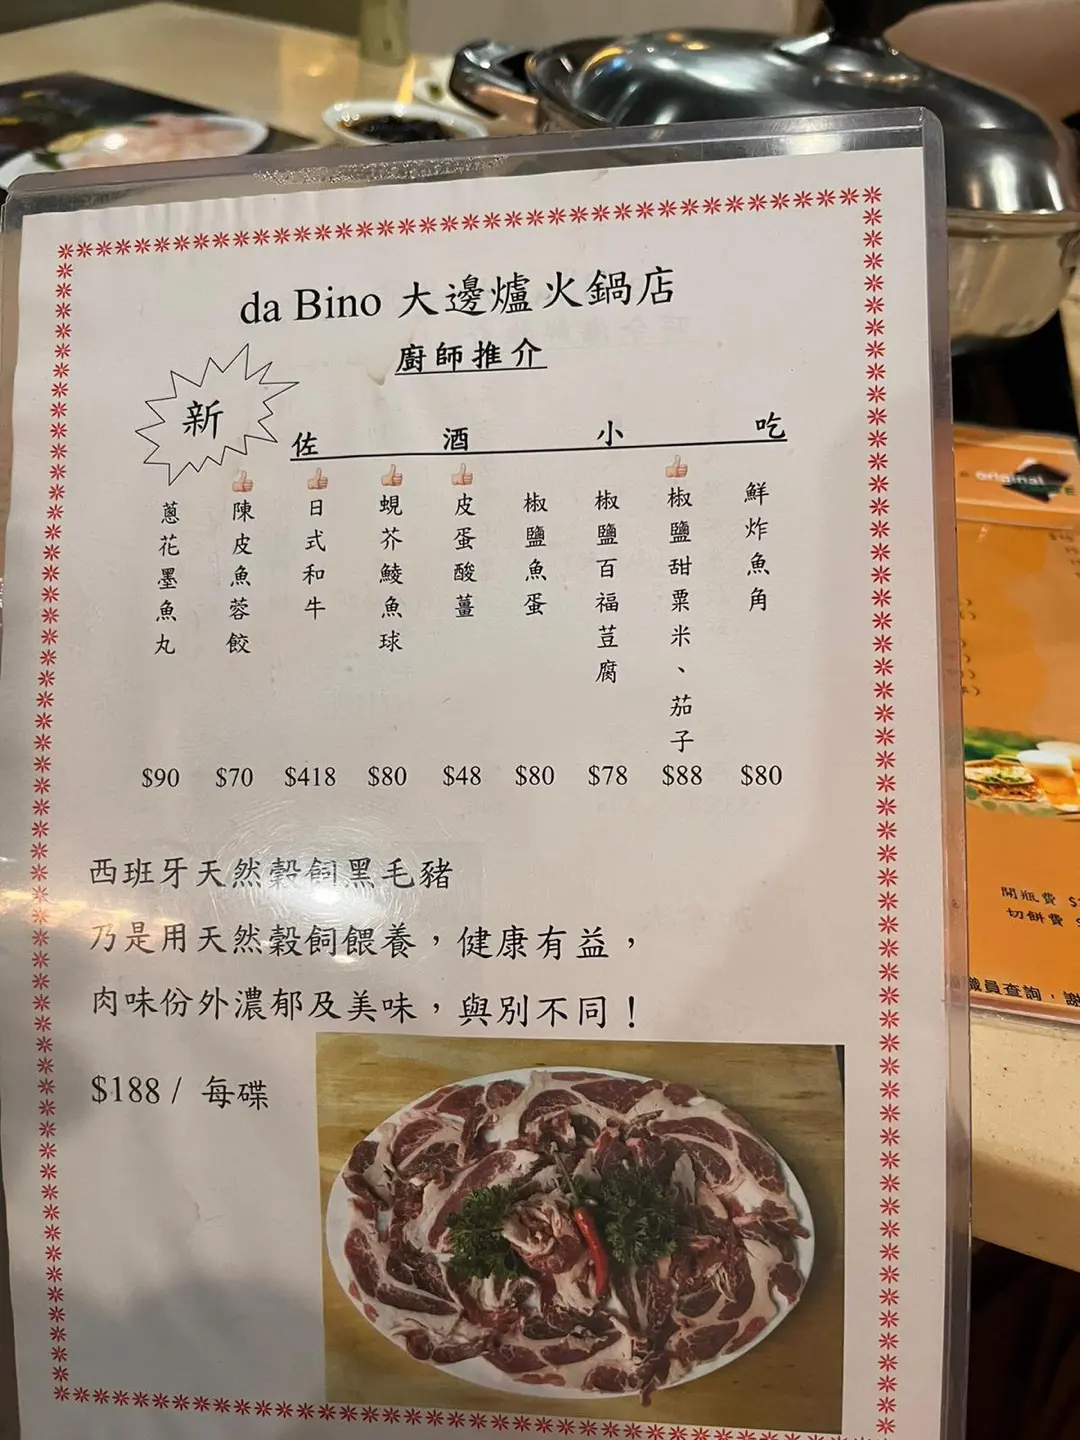 da Bino 大邊爐火鍋店
廚師推介
新
佐酒小吃
蔥花墨魚丸
陳皮魚蓉餃
日式和牛
蜆芥鯪魚球
皮蛋酸薑
椒鹽魚蛋
椒鹽百福荳腐
椒鹽甜粟米、茄子
鮮炸魚角
$90 $70 $418 $80 $48 $80 $78 $88 $80
西班牙天然穀飼黑毛豬
乃是用天然穀飼餵養，健康有益，
肉味份外濃郁及美味，與別不同！
$188 / 每碟
original
開瓶費
切餅費
職員查詢，謝